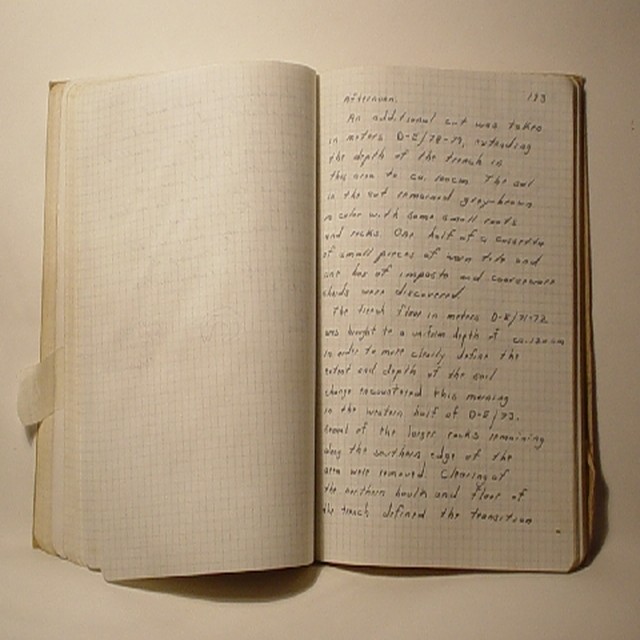 193
afternoon.
An additional cut was taken
in meters D-E/78-79, extending
the depth of the trench in
this area to ca. 100cm. The soil
in the cut remained grey-brown
in color with some small roots
and rocks. One half of a cassetta
of small pieces of worn tile and
one box of impasto and coarseware
sherds were discovered.
The trench floor in meters D-E/71-72
was brought to a uniform depth of ca. 120cm
in order to more clearly define the
extent and depth of the soil
change encountered this morning
in the western half of D-E/73.
Several of the larger rocks remaining
along the southern edge of the
area were removed. Clearing of
the northern baulk and floor of
the trench defined the transition